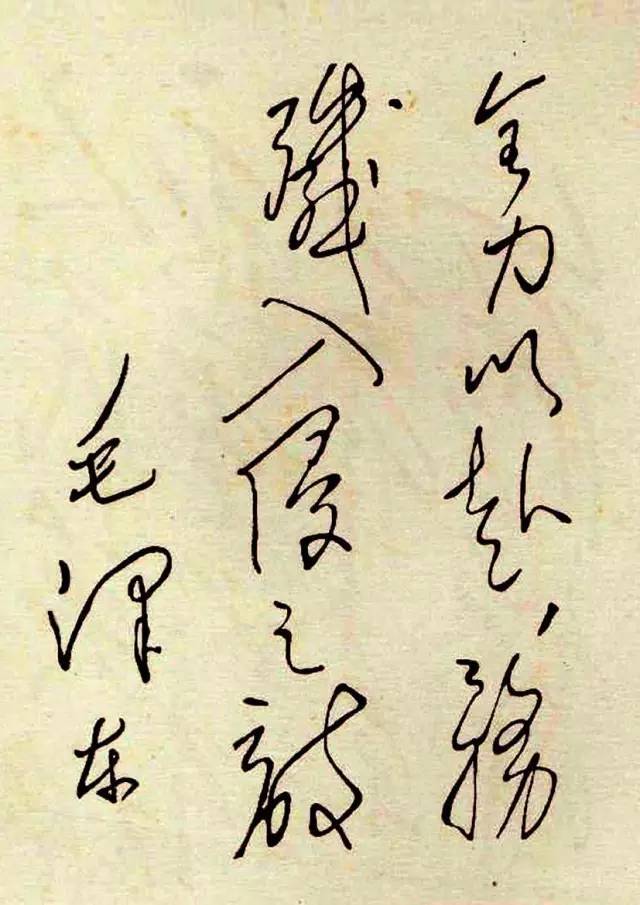 全力以赴,務
殲入侵之敵
毛澤东